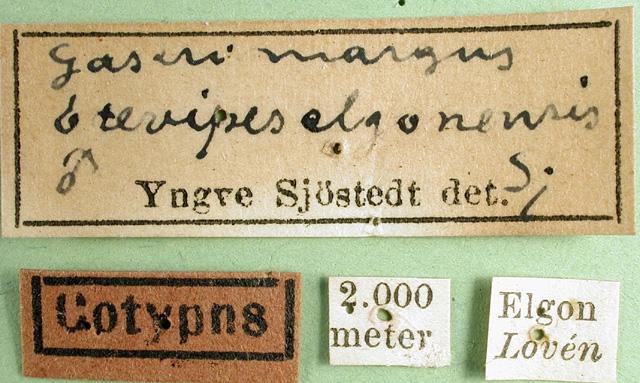 Gastri margus
brevipes elgonensis
♂ Sj.
Yngve Sjöstedt det.
Cotypus
2.000
meter
Elgon
Lovén